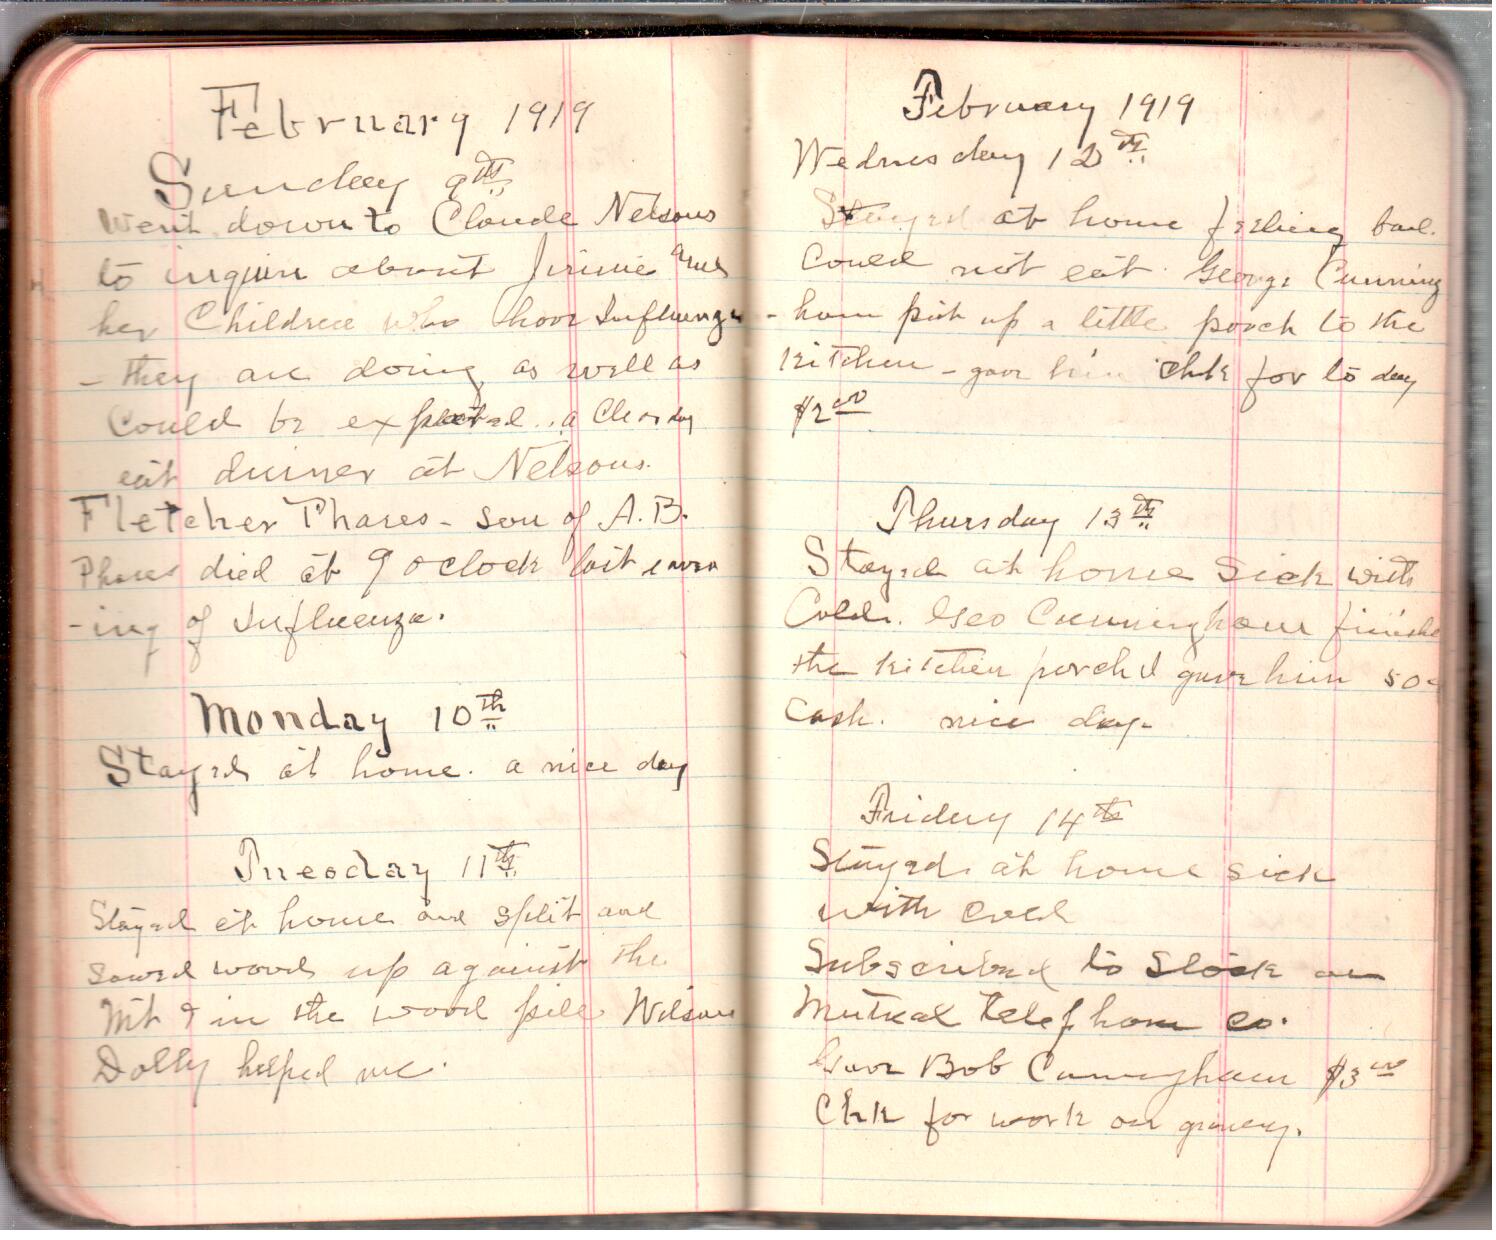 February 1919
Sunday 9th
Went down to Claude Nelsons
to inquire about Jinnie and
her Children who have Influenza
- they are doing as well as
Could be expected. a Clear day
eat dinner at Nelsons.
Fletcher Phares - son of A.B.
Phares died at 9 oclock last even
-ing of Influenza.
Monday 10th
Stayed at home. a nice day
Tuesday 11th
Stayed at home and split and
sawed wood up against the
& in the wood pile. Wilson
Dolly helped me.
February 1919
Wednesday 12th
Stayed at home feeling bad.
Could not eat. George Cunning
-ham put up a little porch to the
kitchen - gave him chk for to day
$2.00
Thursday 13th
Stayed at home sick with
Cold. Geo Cunningham finished
the kitchen porch I gave him 50c
Cash. nice day.
Friday 14th
Stayed at home sick
with cold
Subscribed to Stock in
Mutual telephone co.
Gave Bob Cunningham $3.00
Chk for work on granery.